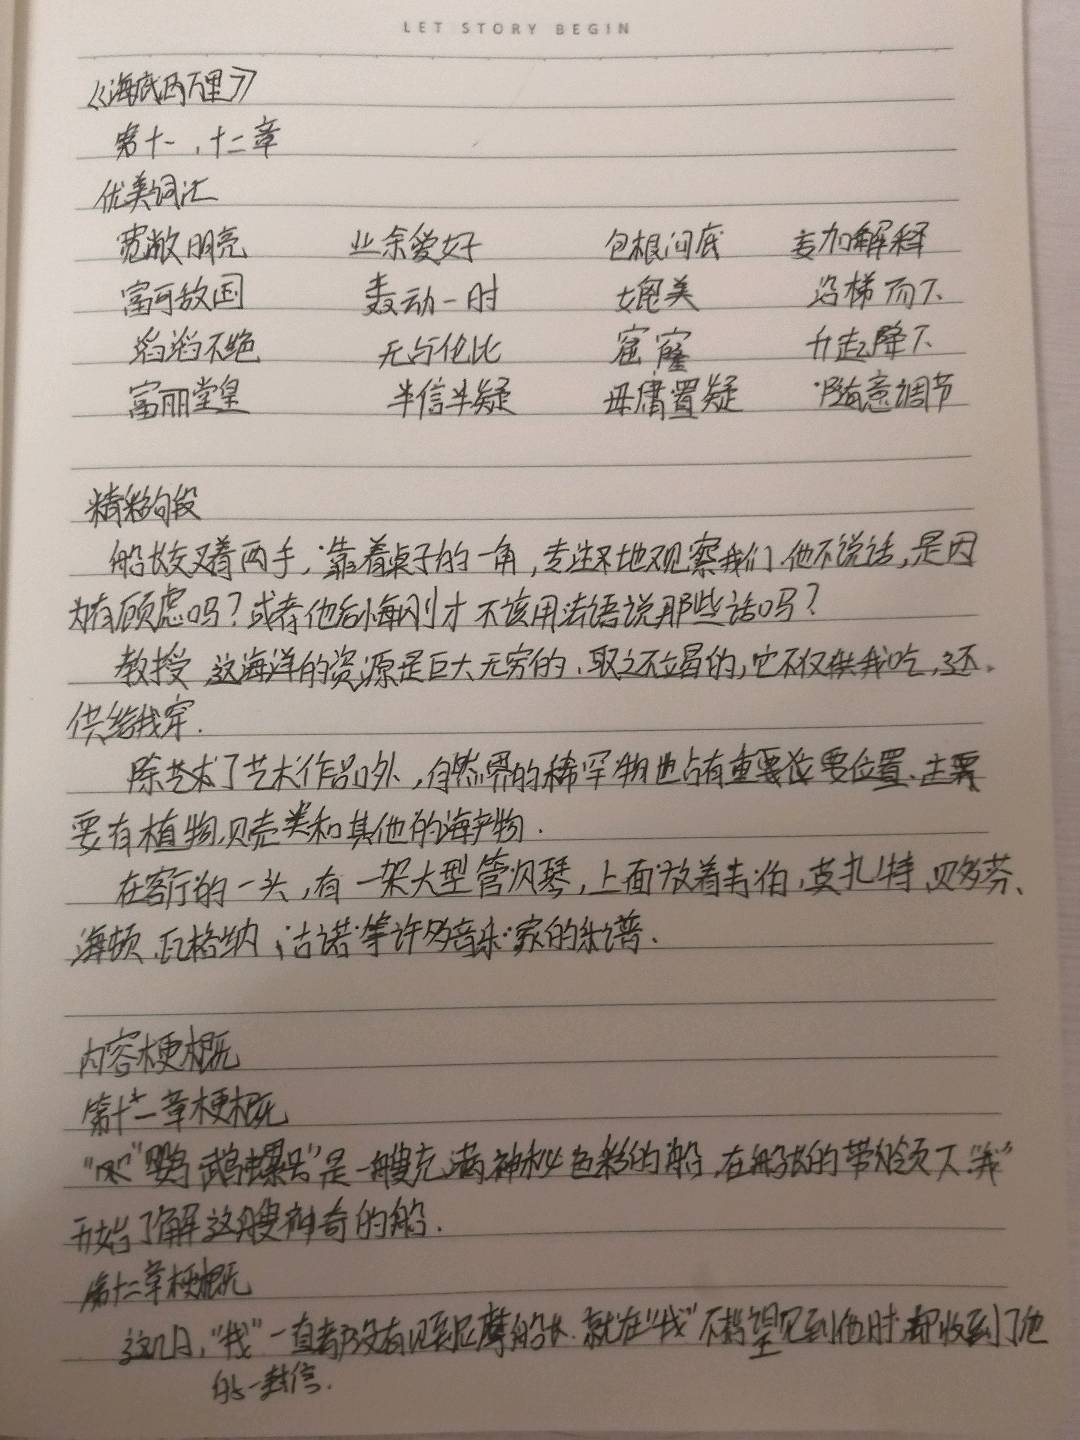 LET STORY BEGIN
《海底两万里》
第十一、十二章
优美词汇
宽敞明亮 业余爱好 包根问底 妄加解释
富可敌国 轰动一时 媲美 沿梯而下
滔滔不绝 无与伦比 窟窿 升起降下
富丽堂皇 半信半疑 毋庸置疑 随意调节
精彩句段
船长交叉着两手,靠着桌子的一角,专注地观察我们.他不说话,是因
为有顾虑吗?或者他后悔刚才不该用法语说那些话吗?
教授 这海洋的资源是巨大无穷的、取之不竭的,它不仅供我吃,还
供给我穿.
除艺术了艺术作品外,自然界的稀罕物也占有重要位置.主要
要有植物、贝壳类和其他的海产物.
在客厅的一头,有一架大型管风琴,上面放着韦伯,莫扎特、贝多芬、
海顿、瓦格纳、古诺等许多音乐家的乐谱.
内容梗概
第十一章梗概
"鹦鹉螺号"是一艘充满神秘色彩的船,在船长的带领下"我"
开始了解这艘神奇的船.
第十二章梗概
这几日,"我"一直都没有见到尼摩船长.就在"我"不指望见到他时却收到了他
的一封信.